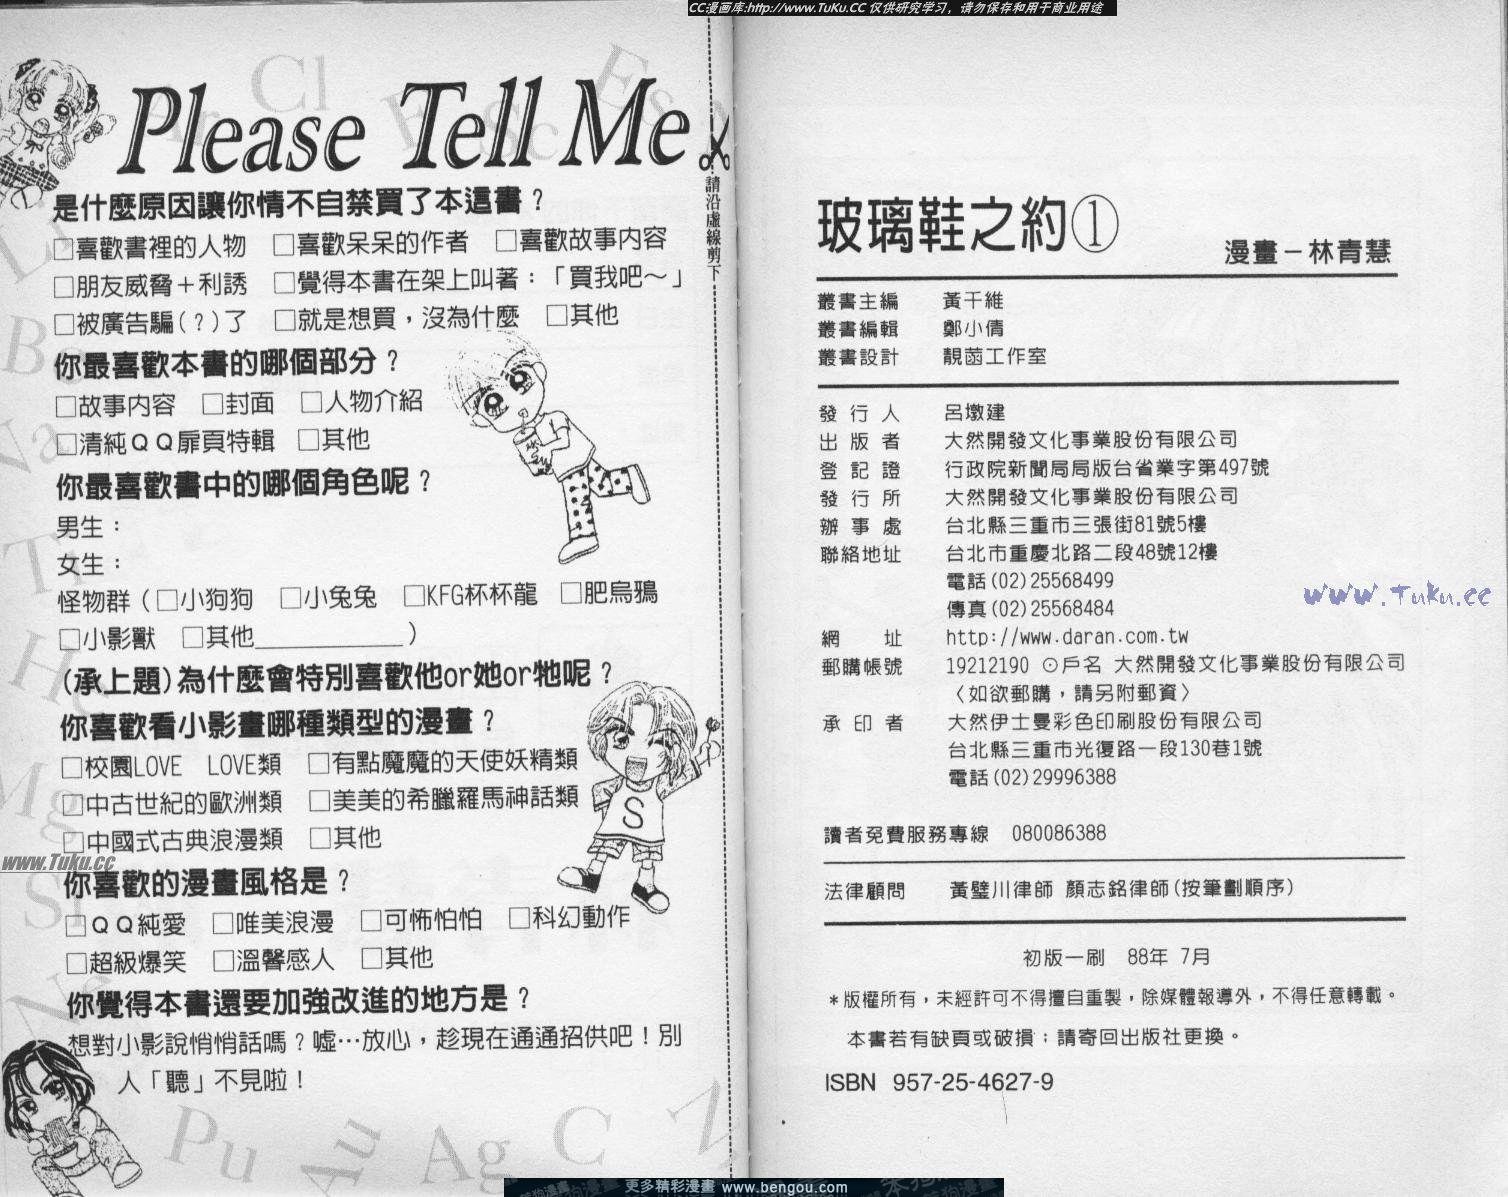 CC漫画库:http://www.TuKu.CC 仅供研究学习，请勿保存和用于商业用途
Please Tell Me
請沿虛線剪下
是什麼原因讓你情不自禁買了本這書？
□喜歡書裡的人物 □喜歡呆呆的作者 □喜歡故事內容
□朋友威脅＋利誘 □覺得本書在架上叫著：「買我吧～」
□被廣告騙(？)了 □就是想買，沒為什麼 □其他
你最喜歡本書的哪個部分？
□故事內容 □封面 □人物介紹
□清純ＱＱ扉頁特輯 □其他
你最喜歡書中的哪個角色呢？
男生：
女生：
怪物群（□小狗狗 □小兔兔 □KFG杯杯龍 □肥烏鴉
□小影獸 □其他＿＿＿＿＿＿）
(承上題)為什麼會特別喜歡他or她or牠呢？
你喜歡看小影畫哪種類型的漫畫？
□校園LOVE LOVE類 □有點魔魔的天使妖精類
□中古世紀的歐洲類 □美美的希臘羅馬神話類
□中國式古典浪漫類 □其他
你喜歡的漫畫風格是？
□ＱＱ純愛 □唯美浪漫 □可怖怕怕 □科幻動作
□超級爆笑 □溫馨感人 □其他
你覺得本書還要加強改進的地方是？
想對小影說悄悄話嗎？噓…放心，趁現在通通招供吧！別
人「聽」不見啦！
S
Cl
Es
Ar
Sc
Li
Be
Na
Ti
Hc
Mg
Si
Ne
Pu
Au
Ag
C
Z
www.Tuku.cc
玻璃鞋之約①
漫畫－林青慧
叢書主編 黃干維
叢書編輯 鄭小倩
叢書設計 靚菡工作室
發行人 呂墩建
出版者 大然開發文化事業股份有限公司
登記證 行政院新聞局局版台省業字第497號
發行所 大然開發文化事業股份有限公司
辦事處 台北縣三重市三張街81號5樓
聯絡地址 台北市重慶北路二段48號12樓
電話(02)25568499
傳真(02)25568484
網址 http://www.daran.com.tw
郵購帳號 19212190 ⊙戶名 大然開發文化事業股份有限公司
〈如欲郵購，請另附郵資〉
承印者 大然伊士曼彩色印刷股份有限公司
台北縣三重市光復路一段130巷1號
電話(02)29996388
讀者免費服務專線 080086388
法律顧問 黃璧川律師 顏志銘律師(按筆劃順序)
初版一刷 88年 7月
＊版權所有，未經許可不得擅自重製，除媒體報導外，不得任意轉載。
本書若有缺頁或破損：請寄回出版社更換。
ISBN 957-25-4627-9
www.Tuku.cc
更多精彩漫畫 www.bengou.com